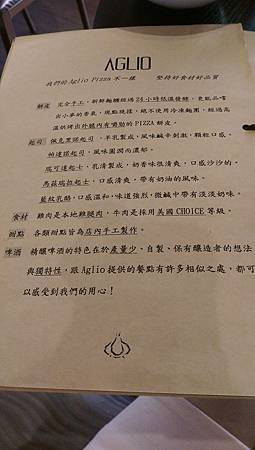 AGLIO
我們的 Aglio Pizza 不一樣 堅持好食材好品質
餅皮 完全手工,新鮮麵糰經過24小時低溫發酵,更能品嚐
出小麥的香氣,現點現揉,絕不使用冷凍麵糰,經過高
溫烘烤出外脆內有嚼勁的PIZZA餅皮。
起司 佩克里諾起司,羊乳製成,風味鹹辛刺激,顆粒口感。
帕達諾起司,風味圓潤而濃郁。
瑞可達起司,乳清製成,奶香味很清爽,口感沙沙的。
馬茲瑞拉起士,口感清爽,帶有奶油的風味。
藍紋乳酪,口感溫和,味道強烈,微鹹中帶有淡淡奶味。
食材 雞肉是本地雞腿肉,牛肉是採用美國CHOICE等級。
甜點 各類甜點皆為店內手工製作。
啤酒 精釀啤酒的特色在於產量少、自製、保有釀造者的想法
與獨特性,跟Aglio提供的餐點有許多相似之處,都可
以感受到我們的用心!